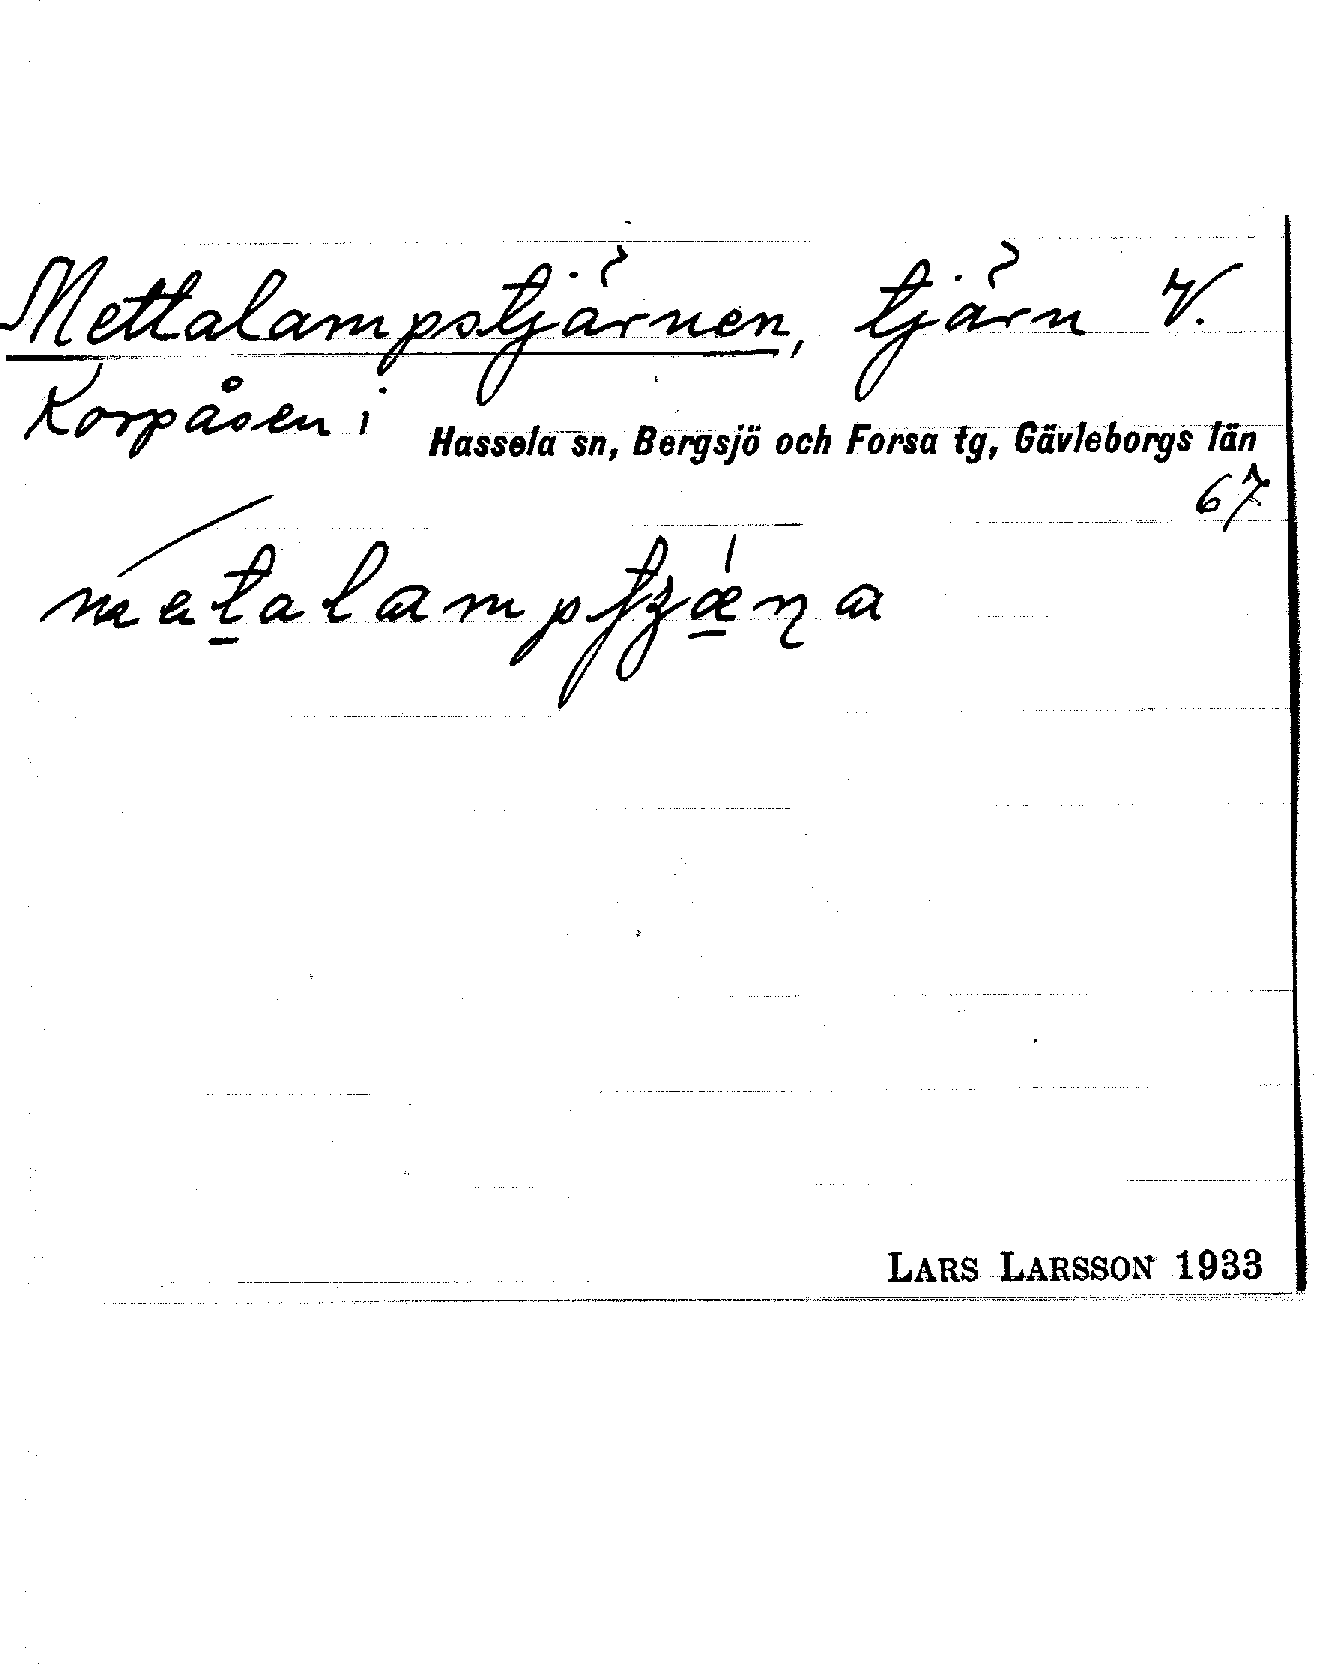 Mettalampstjärnen, tjärn V.
Korpåsen i Hassela sn, Bergsjö och Forsa tg, Gävleborgs län
67
LARS LARSSON 1933